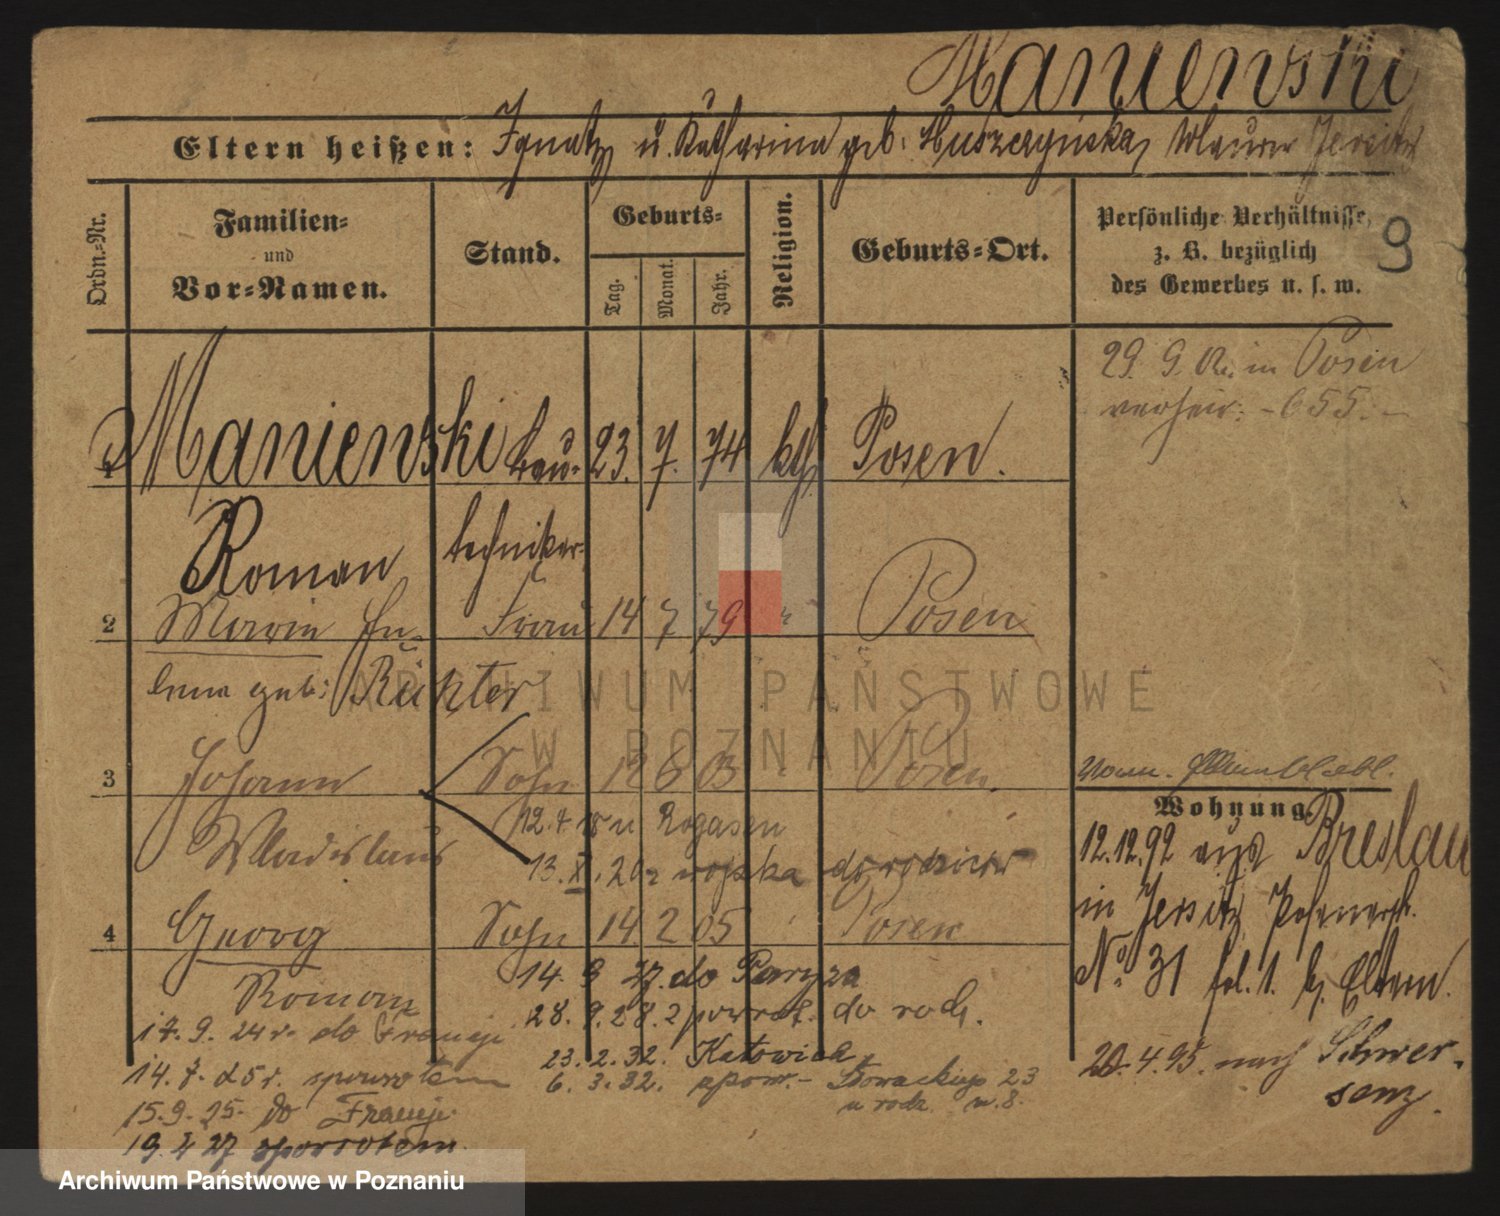 Manienski
Eltern heißen: Ignatz u. Katharina geb. Muszczyńska, Maurer Jersitz
Ordn.-Nr.
Familien- und Vor-Namen.
Stand.
Geburts-
Tag. Monat. Jahr.
Religion.
Geburts-Ort.
Persönliche Verhältnisse, z. B. bezüglich des Gewerbes u. s. w.
9
29. 9. in Posen
verheir. - 655. -
1 Manienski Bau- 23. 7. 74 kth Posen.
Roman techniker
2 Maria He- Frau 14 7 79 " Posen
lena geb: Richter
3 Johann Sohn 12 6 03 Posen.
Wladislaus
12. 7. 18 n Rogasen
13. X. 20 z wojska do rodziców
4 Georg Sohn 14 2 05 Posen
Roman
14. 9 27. do Paryża
28. 9. 28. z powrot. do rodz.
17. 9. 24 r. do Francji
23. 2. 32. Katowice
14. 7. 25 r. spowrotem
6. 3. 32. spow. - 23
u rodz. m. 8.
15. 9. 25. do Francji
19. 4 27 spowrotem
Wohnung.
12.12.92 aus Breslau
in Jersitz
No. 31 fol. 1. b. Eltern.
20. 4. 95. nach Schwer-
senz.
ARCHIWUM PAŃSTWOWE
W POZNANIU
Archiwum Państwowe w Poznaniu